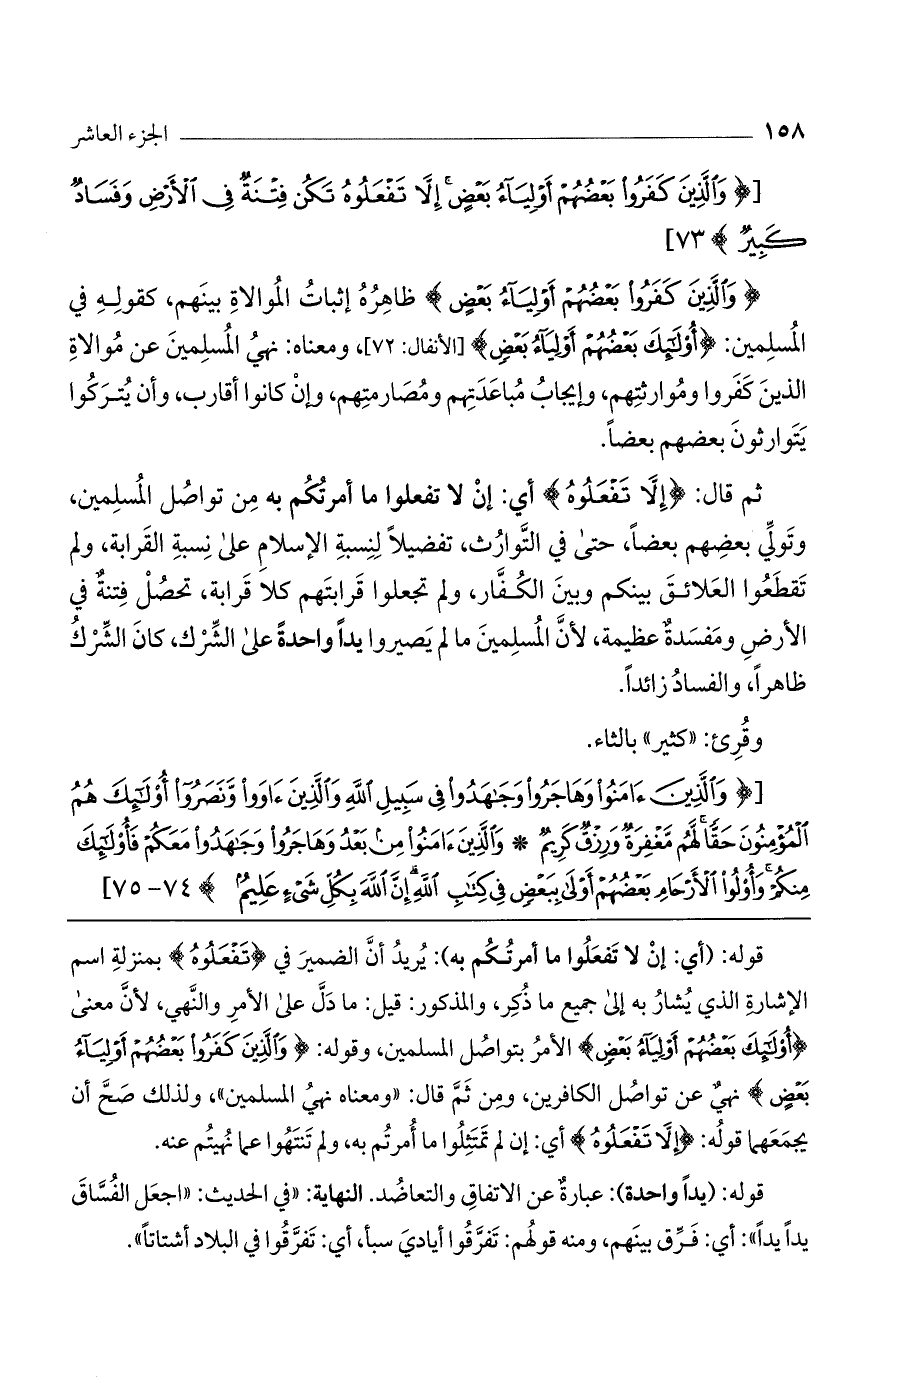 ١٥٨ ــــــــــــــــــــ الجزء العاشر
[﴿ وَٱلَّذِينَ كَفَرُواْ بَعْضُهُمْ أَوْلِيَآءُ بَعْضٍ ۚ إِلَّا تَفْعَلُوهُ تَكُن فِتْنَةٌ فِى ٱلْأَرْضِ وَفَسَادٌ
كَبِيرٌ ﴾ ٧٣]
﴿ وَٱلَّذِينَ كَفَرُواْ بَعْضُهُمْ أَوْلِيَآءُ بَعْضٍ ﴾ ظاهِرُهُ إثباتُ المُوالاةِ بينَهم، كقولِهِ في
المُسلِمين: ﴿أُوْلَٰٓئِكَ بَعْضُهُمْ أَوْلِيَآءُ بَعْضٍ﴾ [الأنفال: ٧٢]، ومعناه: نهيُ المُسلِمينَ عن مُوالاةِ
الذينَ كَفَروا ومُوارثتِهم، وإيجابُ مُباعَدَتِهم ومُصَارمتِهم، وإنْ كانوا أقارب، وأن يُترَكُوا
يَتَوارثونَ بعضهم بعضاً.
ثم قال: ﴿إِلَّا تَفْعَلُوهُ﴾ أي: إنْ لا تفعلوا ما أمرتُكُم به مِن تواصُل المُسلِمين،
وتَولِّي بعضِهم بعضاً، حتىٰ في التَّوارُث، تفضيلاً لِنِسبةِ الإسلامِ علىٰ نِسبةِ القَرابة، ولم
تَقطَعُوا العَلائقَ بينكم وبينَ الكُفَّار، ولم تجعلوا قَرابتَهم كلا قَرابة، تحصُلْ فِتنةٌ في
الأرضِ ومَفسَدةٌ عظيمة، لأنَّ المُسلِمينَ ما لم يَصيروا يداً واحدةً علىٰ الشِّرْك، كانَ الشِّرْكُ
ظاهراً، والفسادُ زائداً.
وقُرِئ: «كثير» بالثاء.
[﴿ وَٱلَّذِينَ ءَامَنُواْ وَهَاجَرُواْ وَجَٰهَدُواْ فِى سَبِيلِ ٱللَّهِ وَٱلَّذِينَ ءَاوَواْ وَّنَصَرُوٓاْ أُوْلَٰٓئِكَ هُمُ
ٱلْمُؤْمِنُونَ حَقًّا ۚ لَّهُم مَّغْفِرَةٌ وَرِزْقٌ كَرِيمٌ * وَٱلَّذِينَ ءَامَنُواْ مِنۢ بَعْدُ وَهَاجَرُواْ وَجَٰهَدُواْ مَعَكُمْ فَأُوْلَٰٓئِكَ
مِنكُمْ ۚ وَأُوْلُواْ ٱلْأَرْحَامِ بَعْضُهُمْ أَوْلَىٰ بِبَعْضٍ فِى كِتَٰبِ ٱللَّهِ ۗ إِنَّ ٱللَّهَ بِكُلِّ شَىْءٍ عَلِيمٌۢ ﴾ ٧٤- ٧٥]
قوله: (أي: إنْ لا تفعَلُوا ما أمرتُكُم به): يُريدُ أنَّ الضميرَ في ﴿تَفْعَلُوهُ﴾ بمنزلةِ اسم
الإشارةِ الذي يُشارُ به إلىٰ جميع ما ذُكِر، والمذكور: قيل: ما دَلَّ علىٰ الأمرِ والنَّهي، لأنَّ معنىٰ
﴿أُوْلَٰٓئِكَ بَعْضُهُمْ أَوْلِيَآءُ بَعْضٍ﴾ الأمرُ بتواصُل المسلمين، وقوله: ﴿ وَٱلَّذِينَ كَفَرُواْ بَعْضُهُمْ أَوْلِيَآءُ
بَعْضٍ ﴾ نهيٌ عن تواصُل الكافرين، ومِن ثَمَّ قال: «ومعناه نهيُ المسلمين»، ولذلك صَحَّ أن
يجمَعَهما قولُه: ﴿إِلَّا تَفْعَلُوهُ﴾ أي: إن لم تمتَثِلُوا ما أُمرتُم به، ولم تَنتَهُوا عما نُهيتُم عنه.
قوله: (يداً واحدة): عبارةٌ عن الاتفاقِ والتعاضُد. النهاية: «في الحديث: «اجعَل الفُسَّاقَ
يداً يداً»: أي: فَرِّق بينَهم، ومنه قولُهم: تَفرَّقُوا أياديَ سبأ، أي: تَفرَّقُوا في البلاد أشتاتاً».